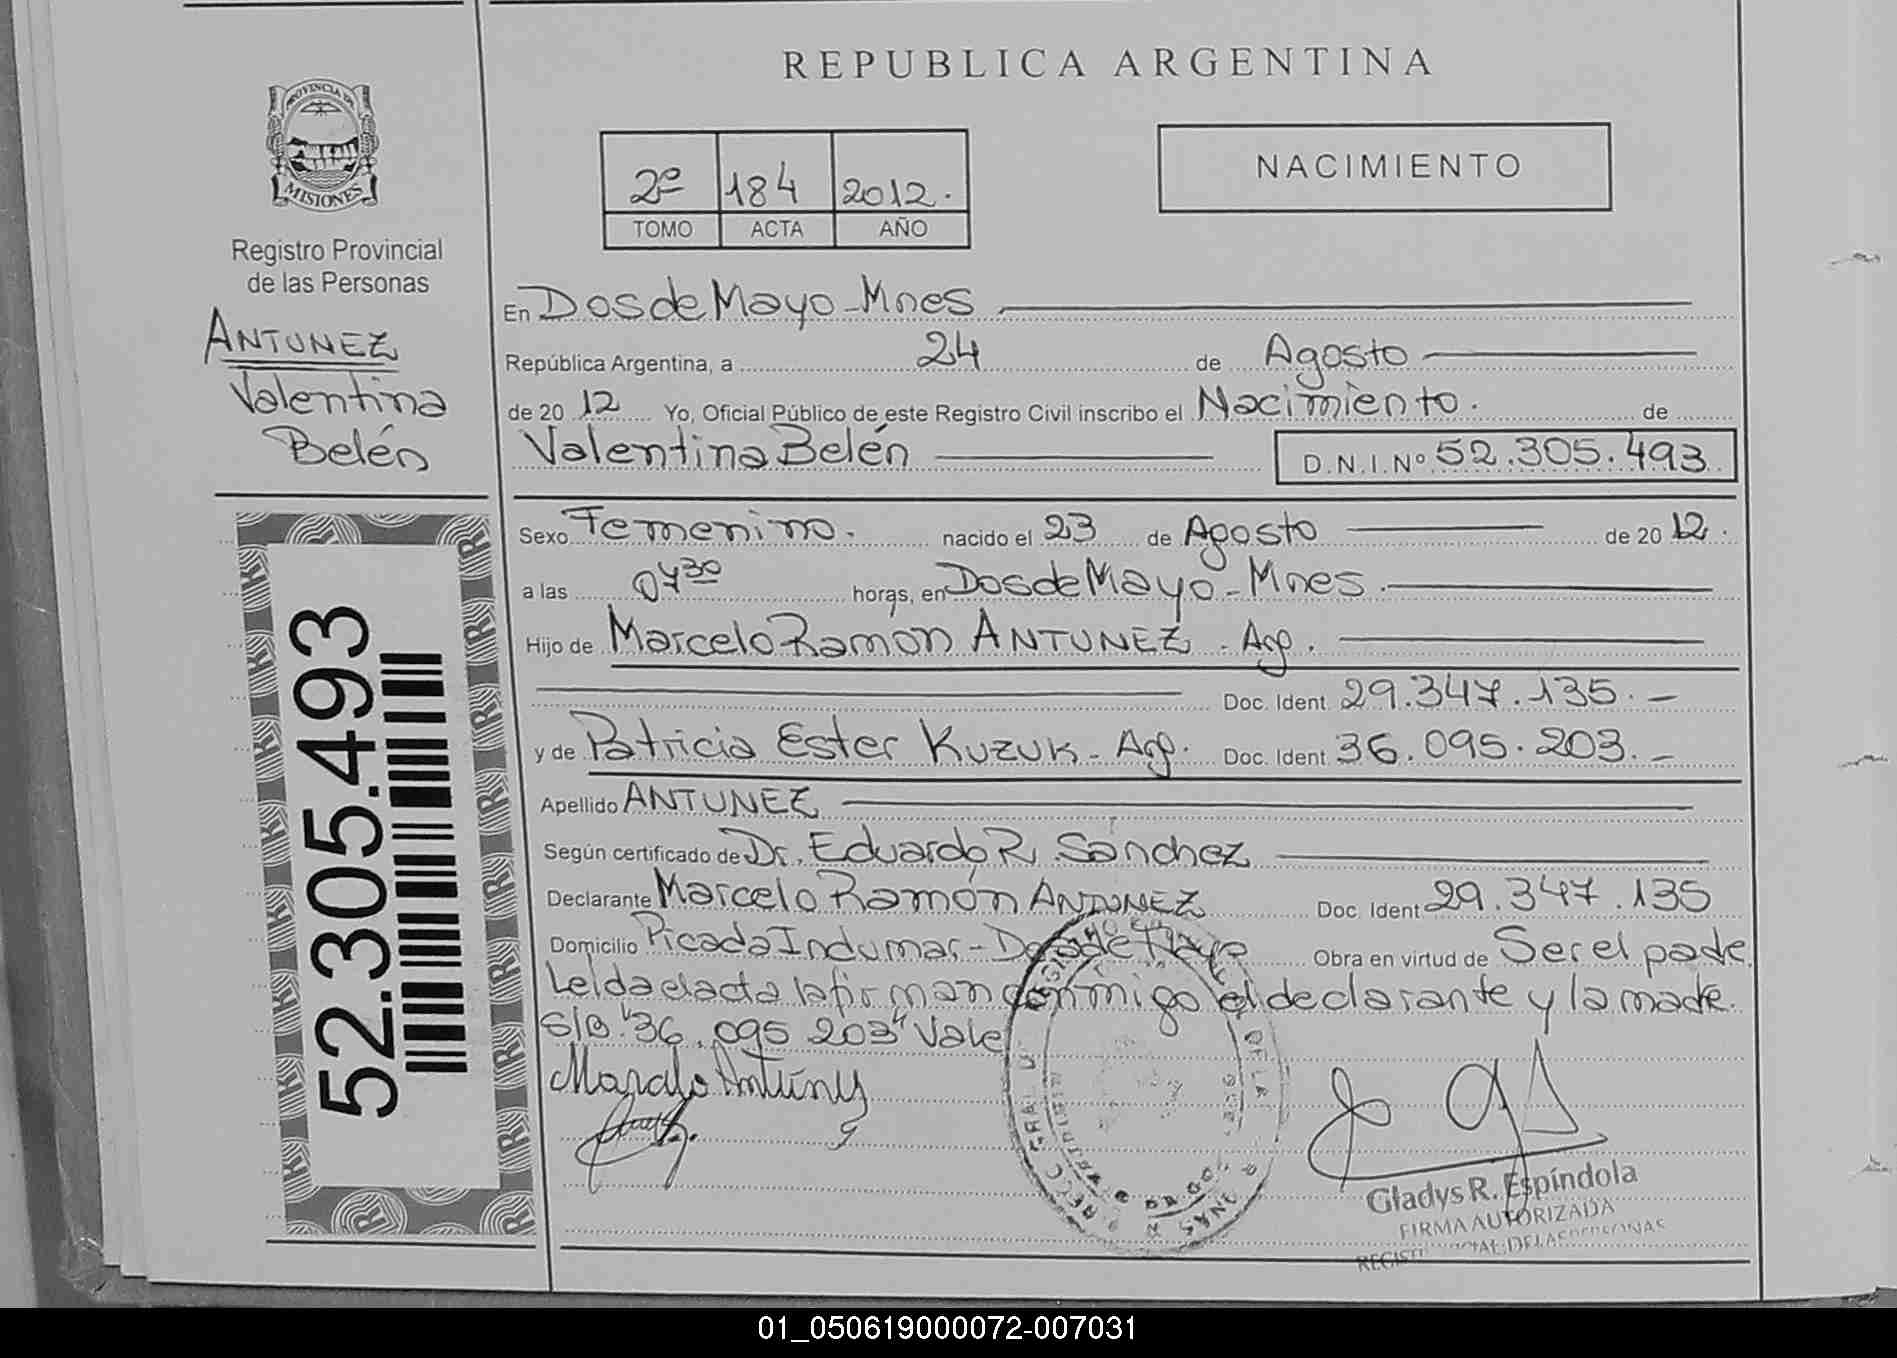 REPUBLICA ARGENTINA
PROVINCIA DE
MISIONES
Registro Provincial
de las Personas
ANTUNEZ
Valentina
Belén
52.305.493
2º 184 2012.
TOMO ACTA AÑO
NACIMIENTO
En Dos de Mayo - Mnes
República Argentina, a 24 de Agosto
de 20 12 Yo, Oficial Público de este Registro Civil inscribo el Nacimiento. de
Valentina Belén D.N.I. Nº 52.305.493
Sexo Femenino. nacido el 23 de Agosto de 20 12.
a las 07 30 horas, en Dos de Mayo - Mnes.
Hijo de Marcelo Ramón ANTUNEZ. Arg.
Doc. Ident 29.347.135.-
y de Patricia Ester Kuzuk - Arg. Doc. Ident 36.095.203.-
Apellido ANTUNEZ
Según certificado de Dr. Eduardo R. Sánchez
Declarante Marcelo Ramón ANTUNEZ Doc. Ident 29.347.135
Domicilio Picada Indumar - Dos de Mayo Obra en virtud de Ser el padre.
Leída el acta la firman conmigo el declarante y la madre.
S/B "36.095 203" Vale
Marcelo Antúnez
Gladys R. Espíndola
FIRMA AUTORIZADA
01_050619000072-007031